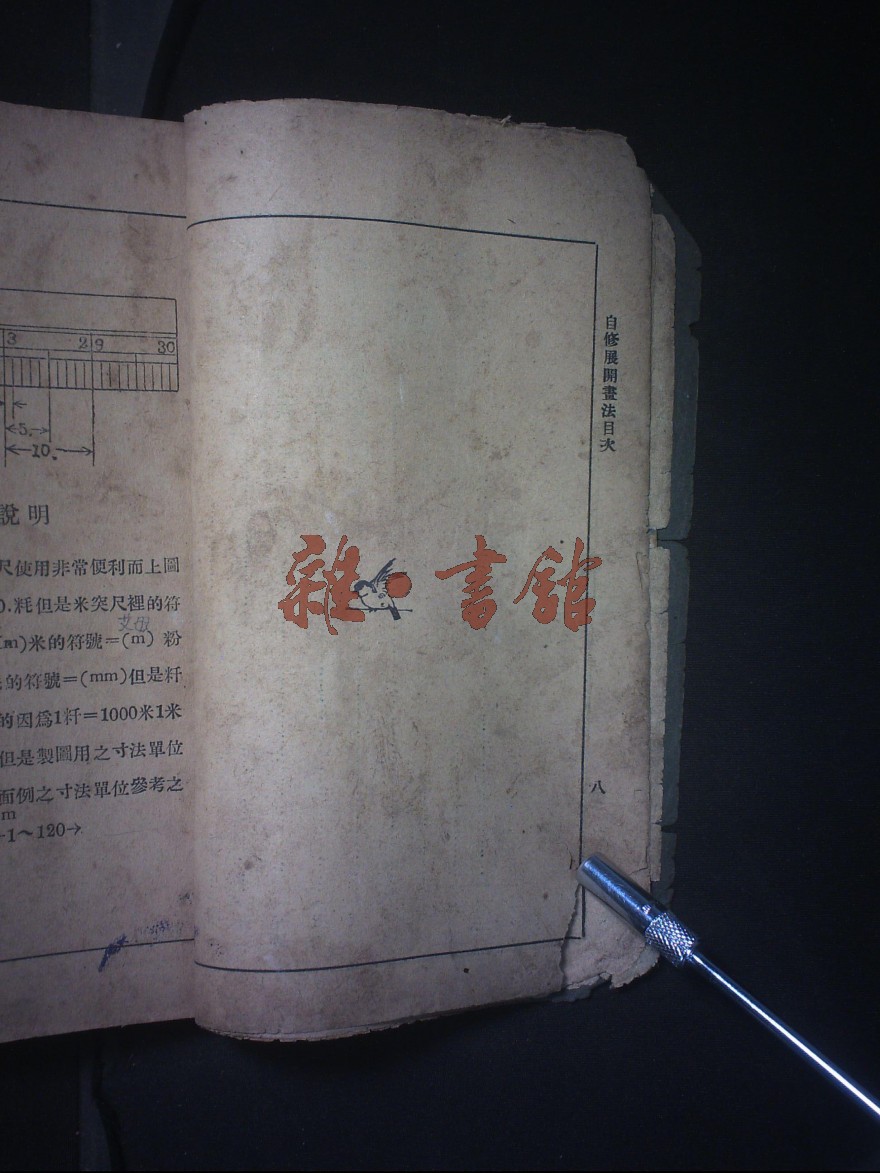 3 29 30
5.
10.
說明
尺使用非常便利而上圖
0.粍但是米突尺裡的符
(m)米的符號=(m) 粉
的符號=(mm)但是粁
的因爲1粁=1000米1米
但是製圖用之寸法單位
面例之寸法單位參考之
m
1～120→
自修展開畫法目次
八
雜·書館